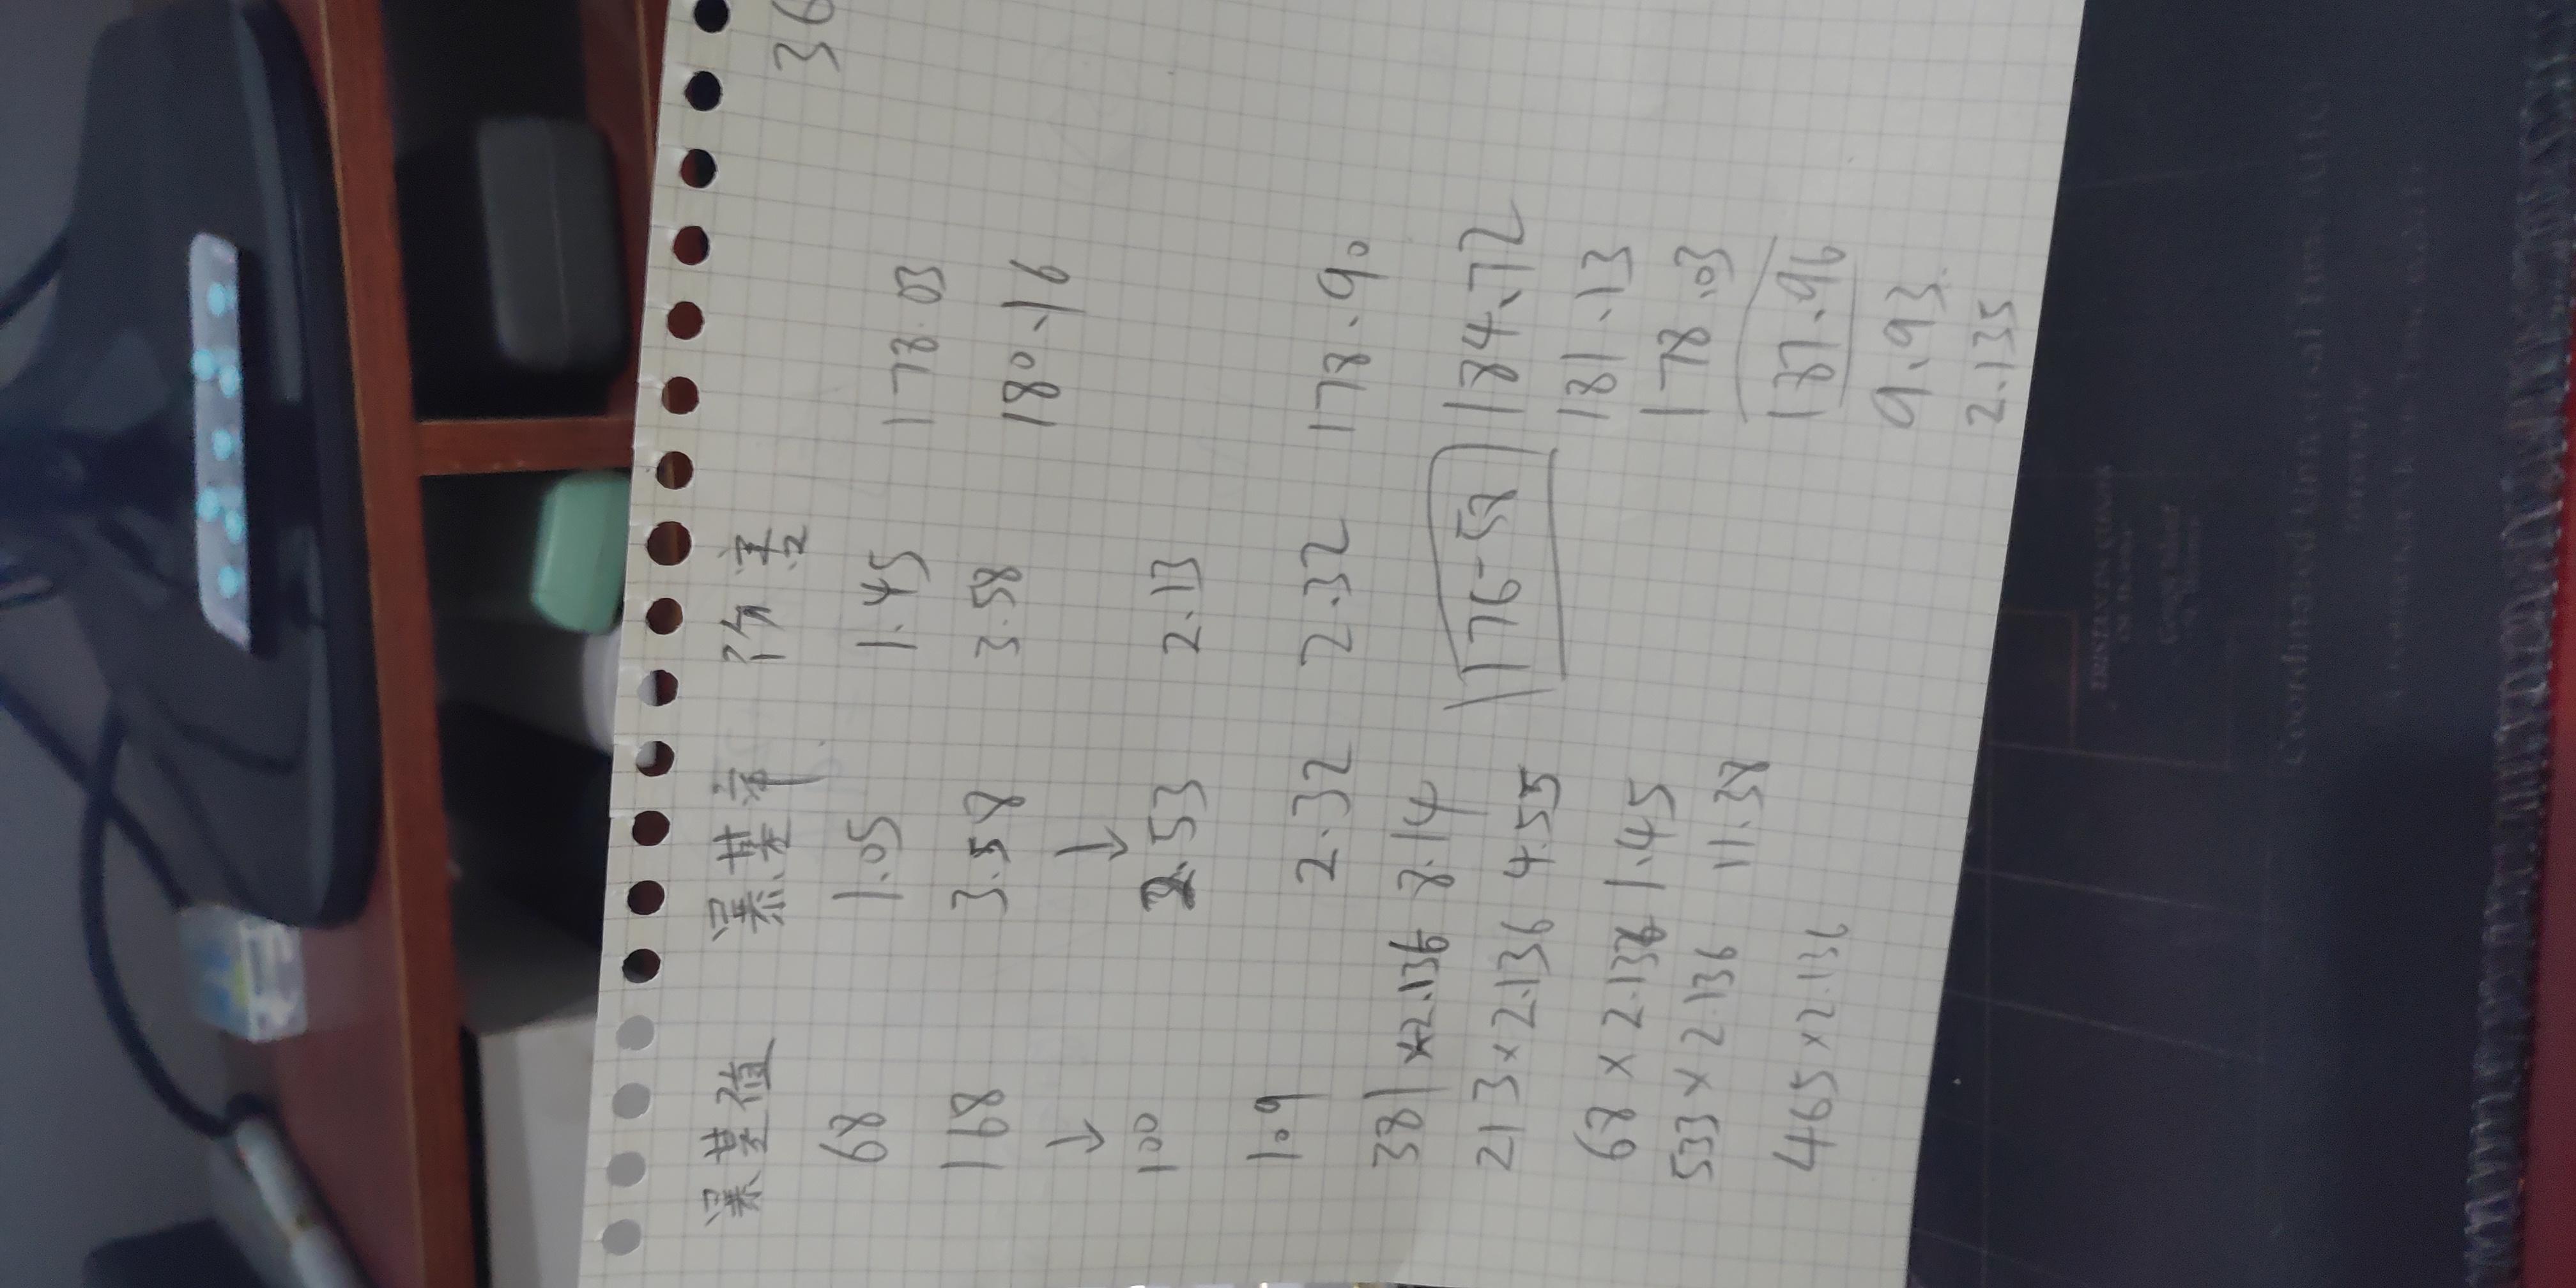 暴基值 暴基率 36
68 1.05 1.45 178.03
168 3.58 3.58 180.16
↓ ↓
100 2.53 2.13
109 2.32 2.32 178.90
381×2.136 8.14 176.58 184.72
213×2.136 4.55 181.13
68×2.136 1.45 178.03
533×2.136 11.38 187.96
465×2.136 9.93
2.135
Coordinated Universal Time (UTC)